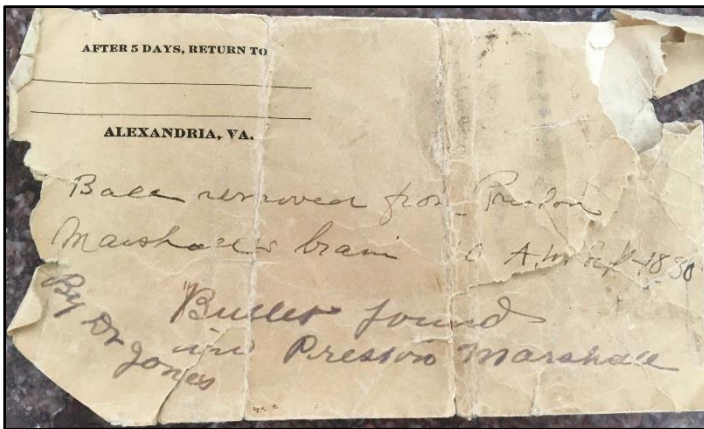 AFTER 5 DAYS, RETURN TO
ALEXANDRIA, VA.
Ball removed from Preston
Marshall's brain A.M. Sept 18
"Bullet found
in Preston Marshall
By Dr
Jones